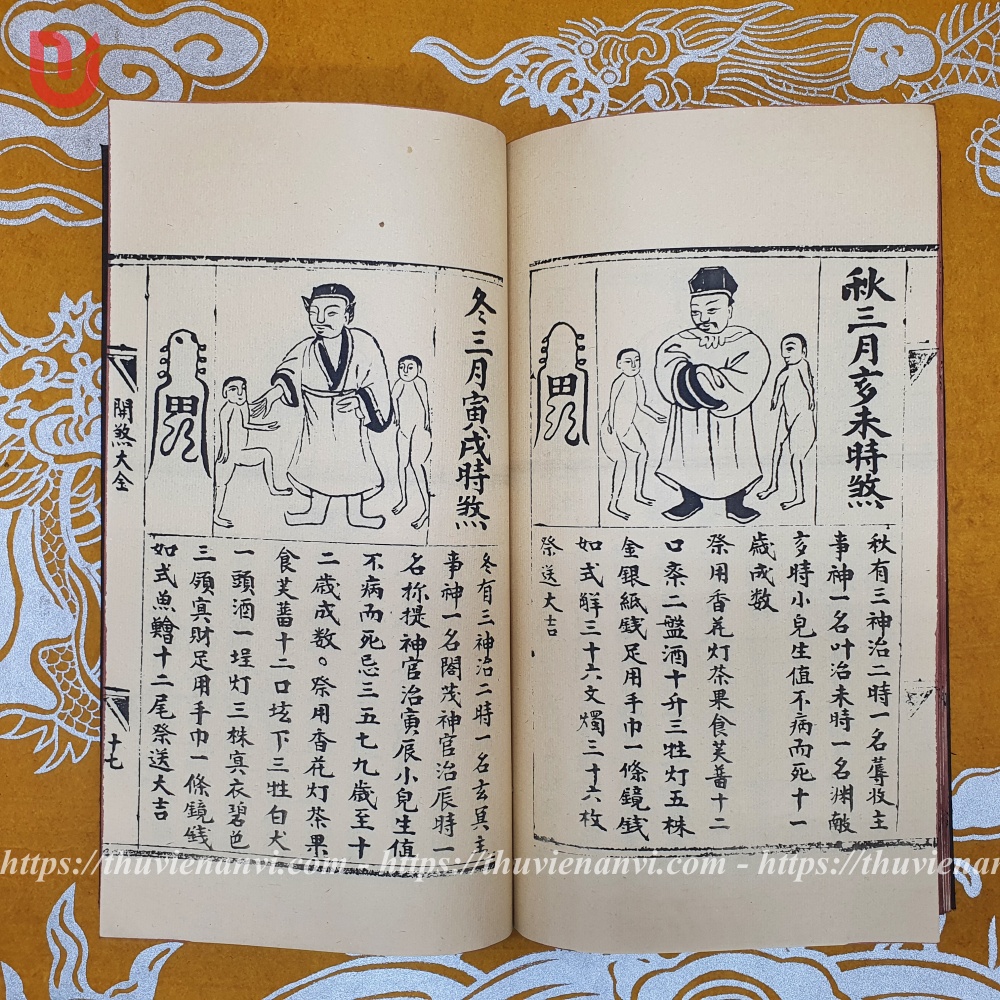 秋三月亥未時煞
秋有三神治二時一名蓐收主
事神一名叶治未時一名淵敵
亥時小兒生值不病而死十一
歲成数
祭用香花灯茶果食芙蕃十二
口桼二盤酒十升三牲灯五株
金銀紙錢足用手巾一條鏡錢
如式解三十六文燭三十六枚
祭送大吉
冬三月寅戌時煞
冬有三神治二時一名玄冥主
事神一名閹茂神官治辰時一
名称提神官治寅辰小兒生值
不病而死忌三五七九歲至十
二歲成数。祭用香花灯茶果
食芙蕃十二口坛下三牲白犬
一頭酒一埕灯三株寘衣碧色
三領寘財足用手巾一條鏡錢
如式魚鱠十二尾祭送大吉
開煞大全
十七
https://thuvienanvi.com - https://thuvienanvi.com - https://thuvienanvi